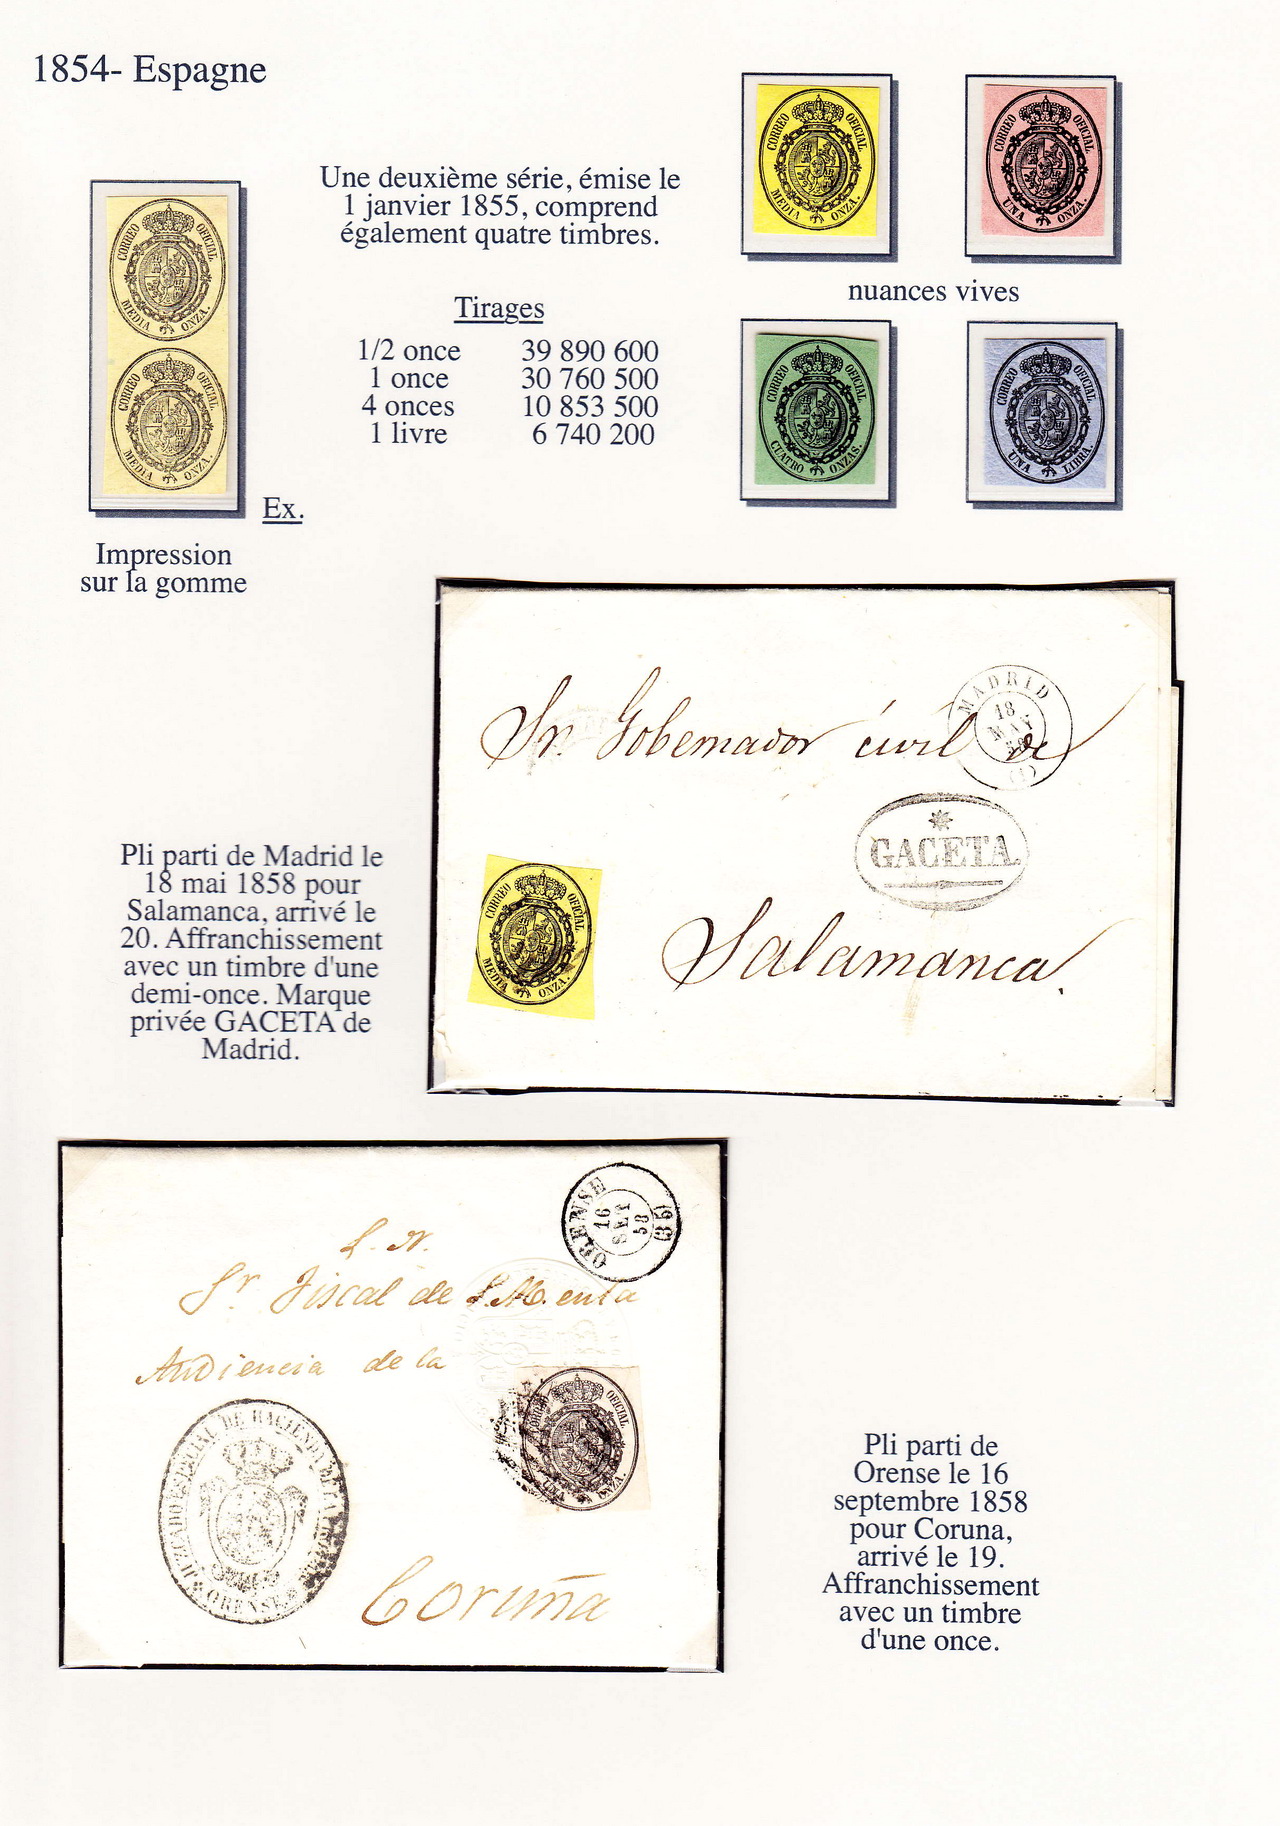 1854- Espagne
CORREO OFICIAL
MEDIA ONZA.
CORREO OFICIAL
UNA ONZA.
Une deuxième série, émise le
1 janvier 1855, comprend
également quatre timbres.
CORREO OFICIAL
MEDIA ONZA.
CORREO OFICIAL
MEDIA ONZA.
nuances vives
Tirages
1/2 once 39 890 600
1 once 30 760 500
4 onces 10 853 500
1 livre 6 740 200
CORREO OFICIAL
CUATRO ONZAS.
CORREO OFICIAL
UNA LIBRA.
Ex.
Impression
sur la gomme
MADRID
18
MAY
58
(1)
Sr. Gobernador civil de
GACETA.
Salamanca.
CORREO OFICIAL
MEDIA ONZA.
Pli parti de Madrid le
18 mai 1858 pour
Salamanca, arrivé le
20. Affranchissement
avec un timbre d'une
demi-once. Marque
privée GACETA de
Madrid.
ORENSE
16
SET
58
Sr. Fiscal de
Audiencia de la
CORREO OFICIAL
UNA ONZA.
JUZGADO ESPECIAL DE HACIENDA DE LA
ORENSE
Coruña
Pli parti de
Orense le 16
septembre 1858
pour Coruna,
arrivé le 19.
Affranchissement
avec un timbre
d'une once.